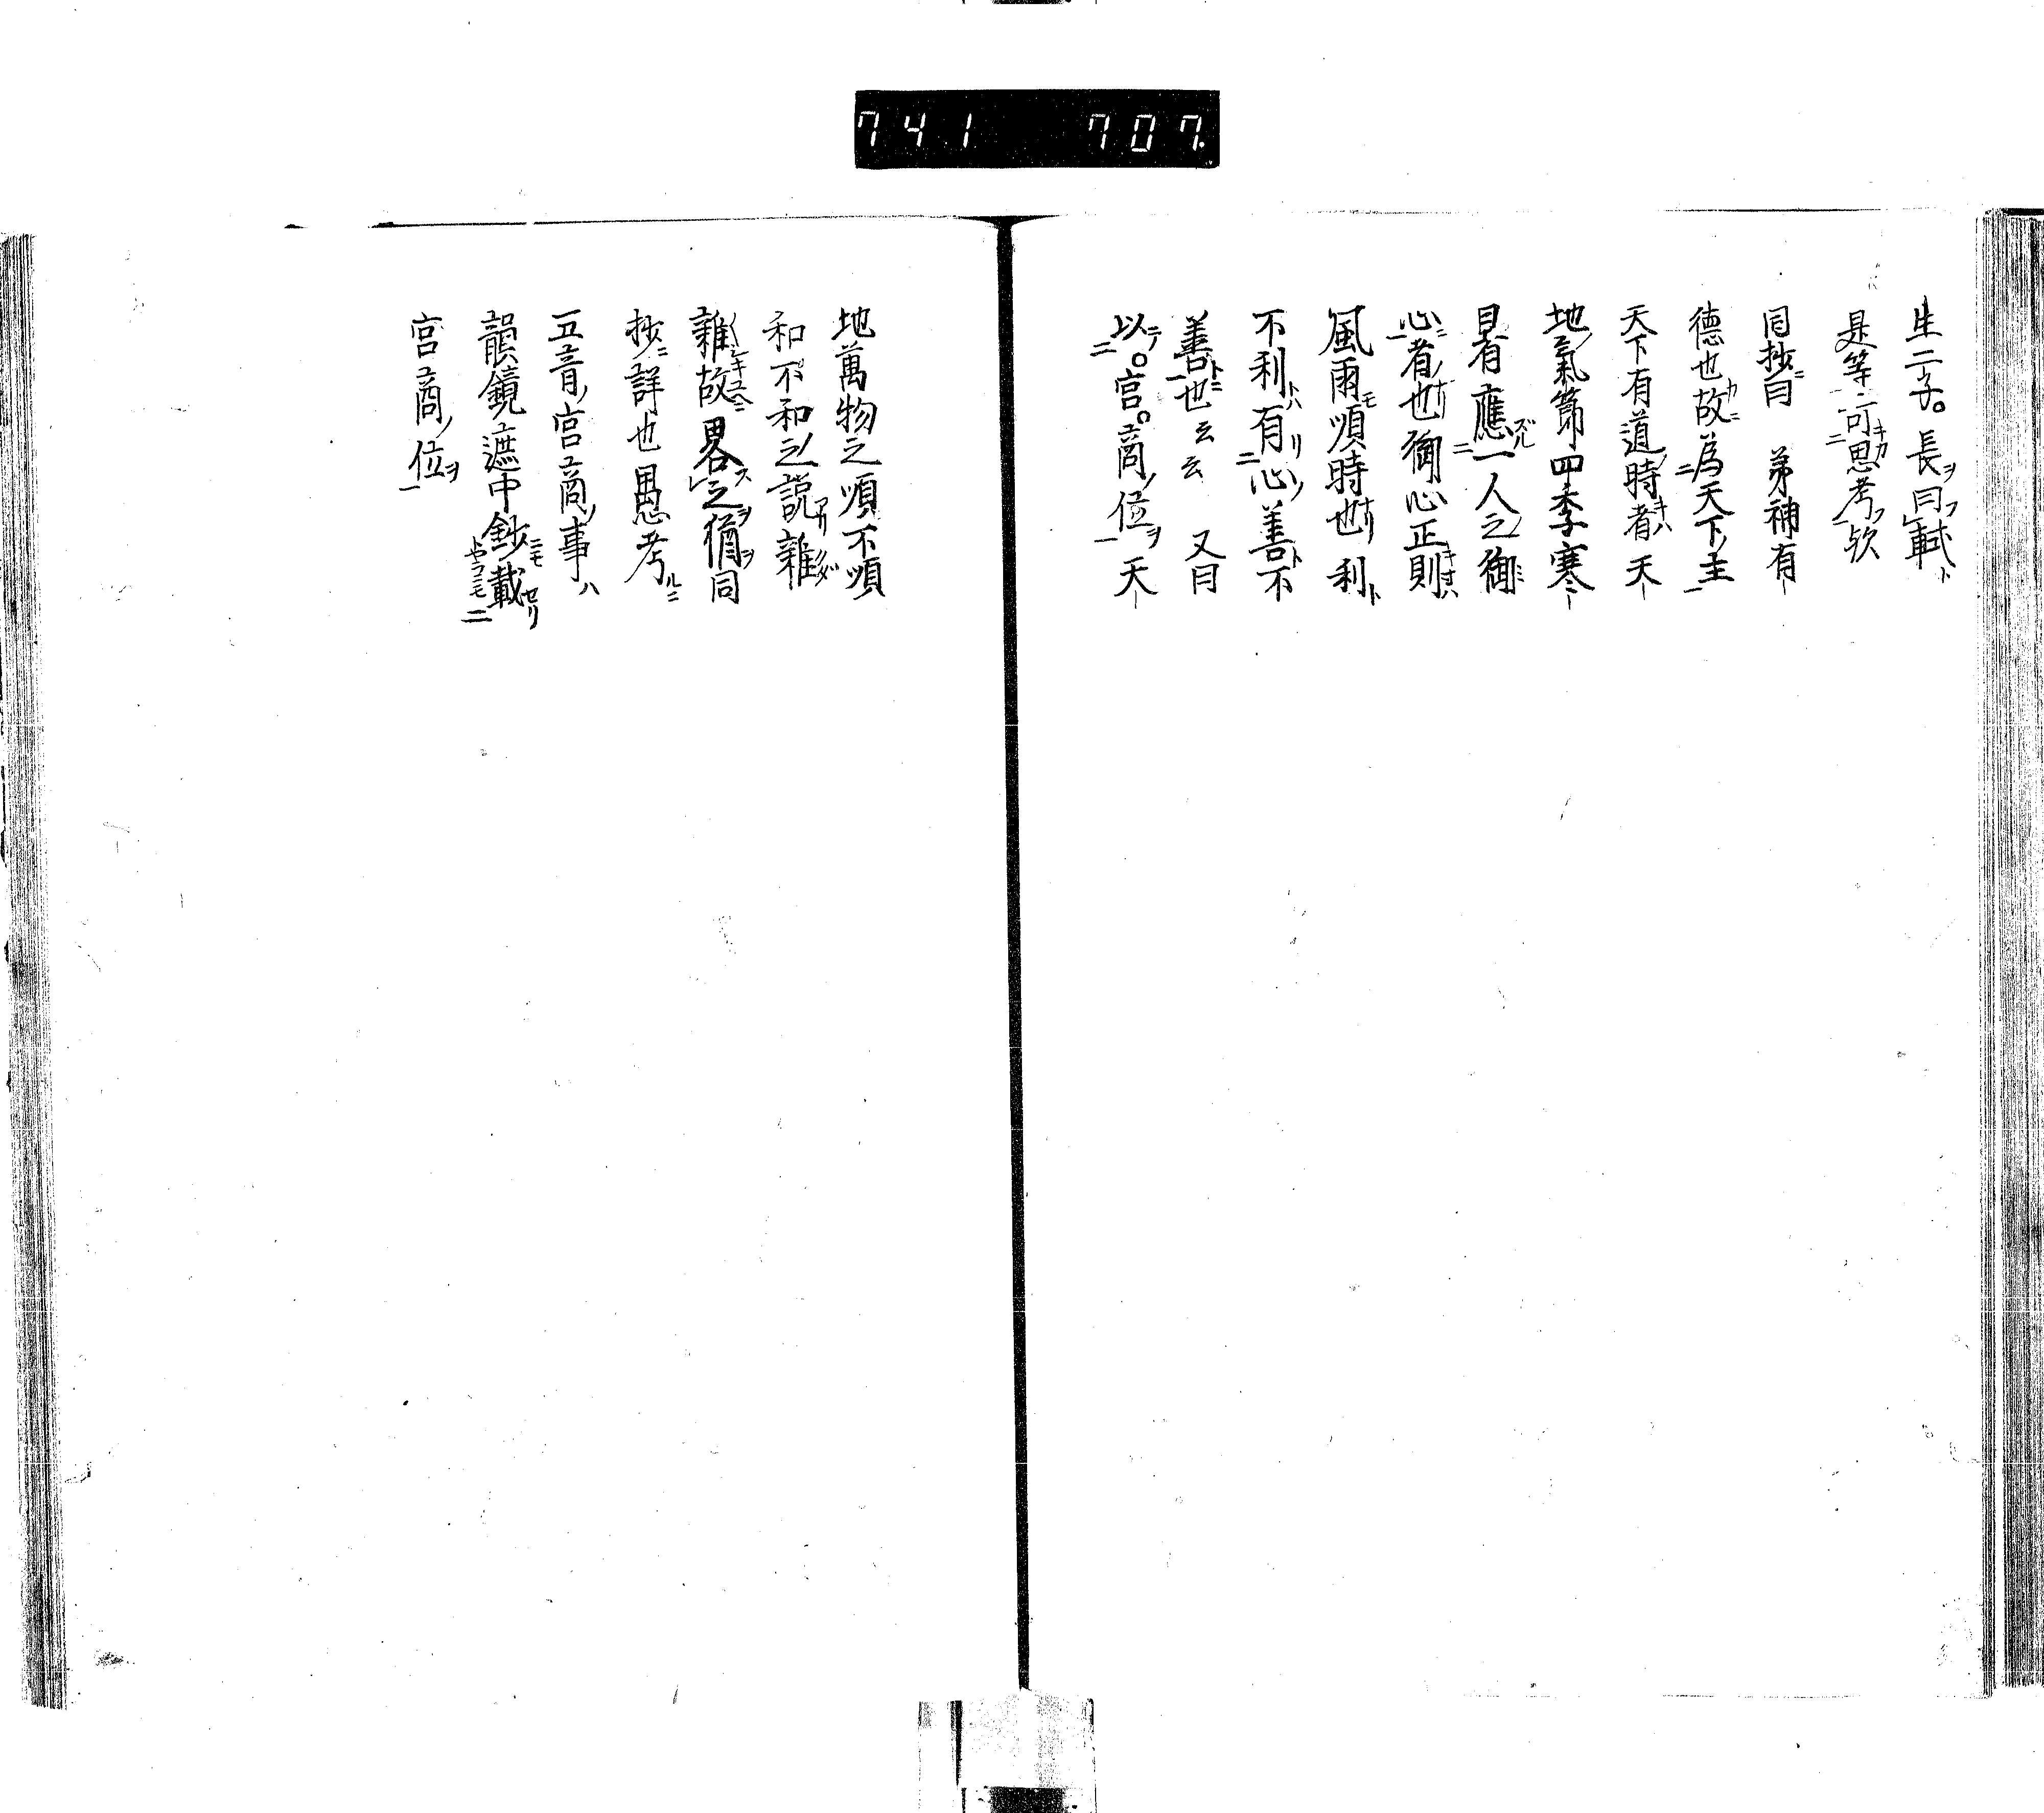 741 707
生二子。長ヲ曰フ軾ト
是等ニ可キカ二思考フ一欤
同抄ニ曰 弟神有
徳也故カニ為二天下ノ主一
天下有道ノ時キハ者天
地ノ氣節四季寒
暑有應ズル二一人之ノ御ミ
心ニ一者也ナリ御心正キ則ハ
風雨モ順時也ナリ利ト
不利トハ有リ二心ノ善ト不
善トニ一也云云 又曰
以テ二宮。商ノ位ヲ一天
地萬物之順不順
和不和之ノ説アリ雖
雜故畧ス之ヲ猶ヲ同
抄ニ詳也愚考ルニ
五音ノ宮商ノ事ハ
韻鏡遮中鈔ニモ載セリ二
宮商ノ位ヲ一